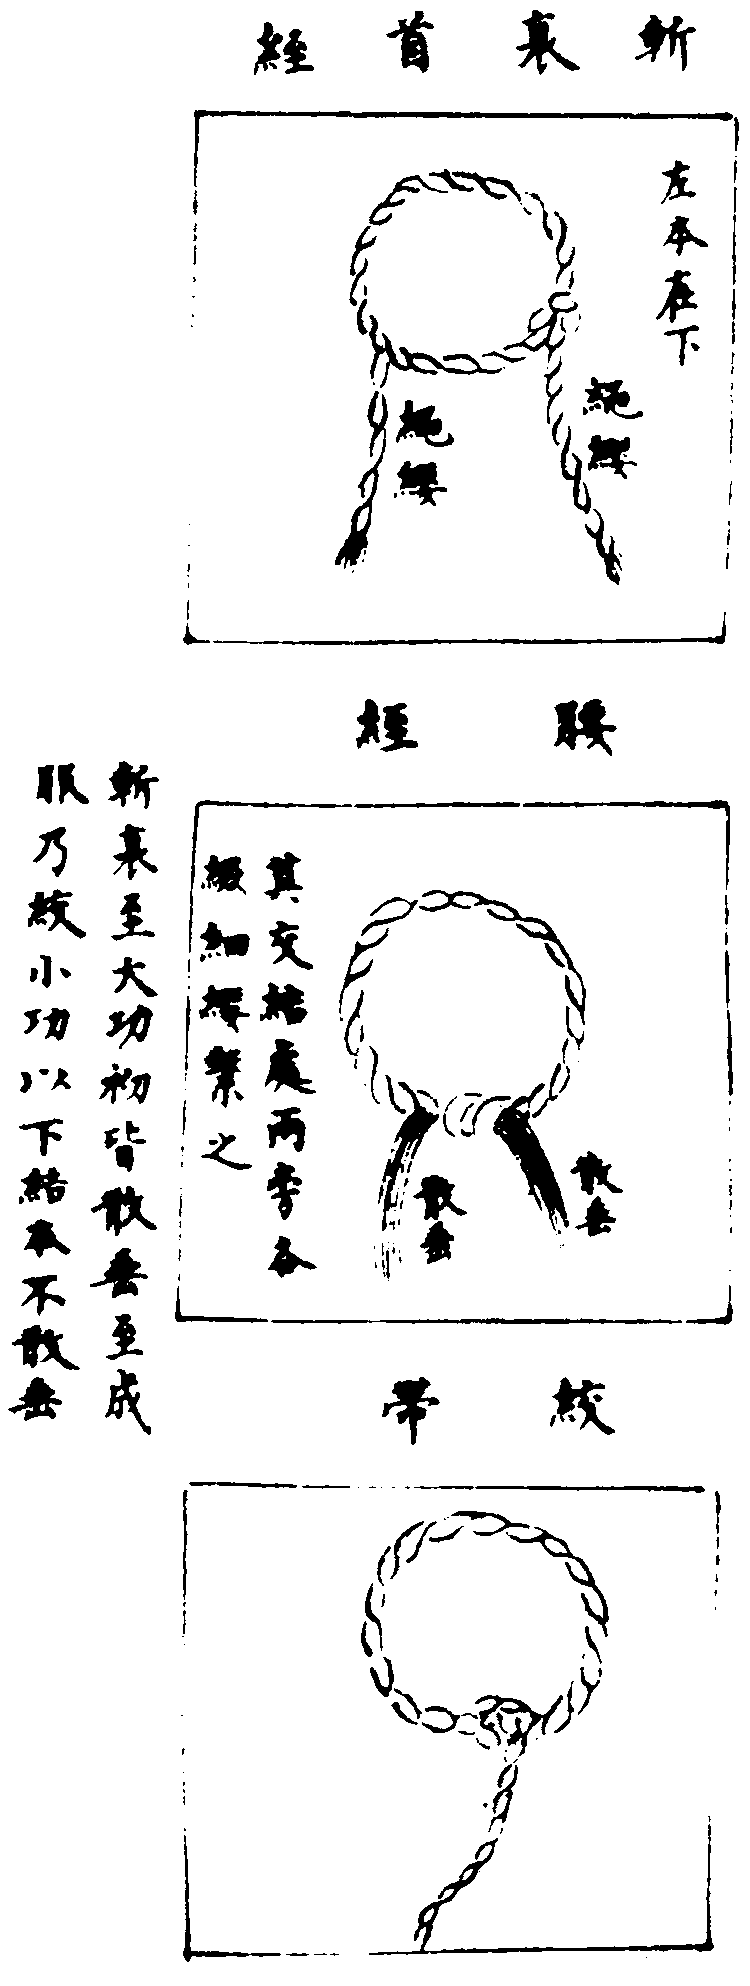 斬衰首絰
左本在下
繩纓
繩纓
腰絰
其交結處兩旁各
綴細纓繫之
散垂
散垂
斬衰至大功初皆散垂至成
服乃絞小功以下結本不散垂
絞帶